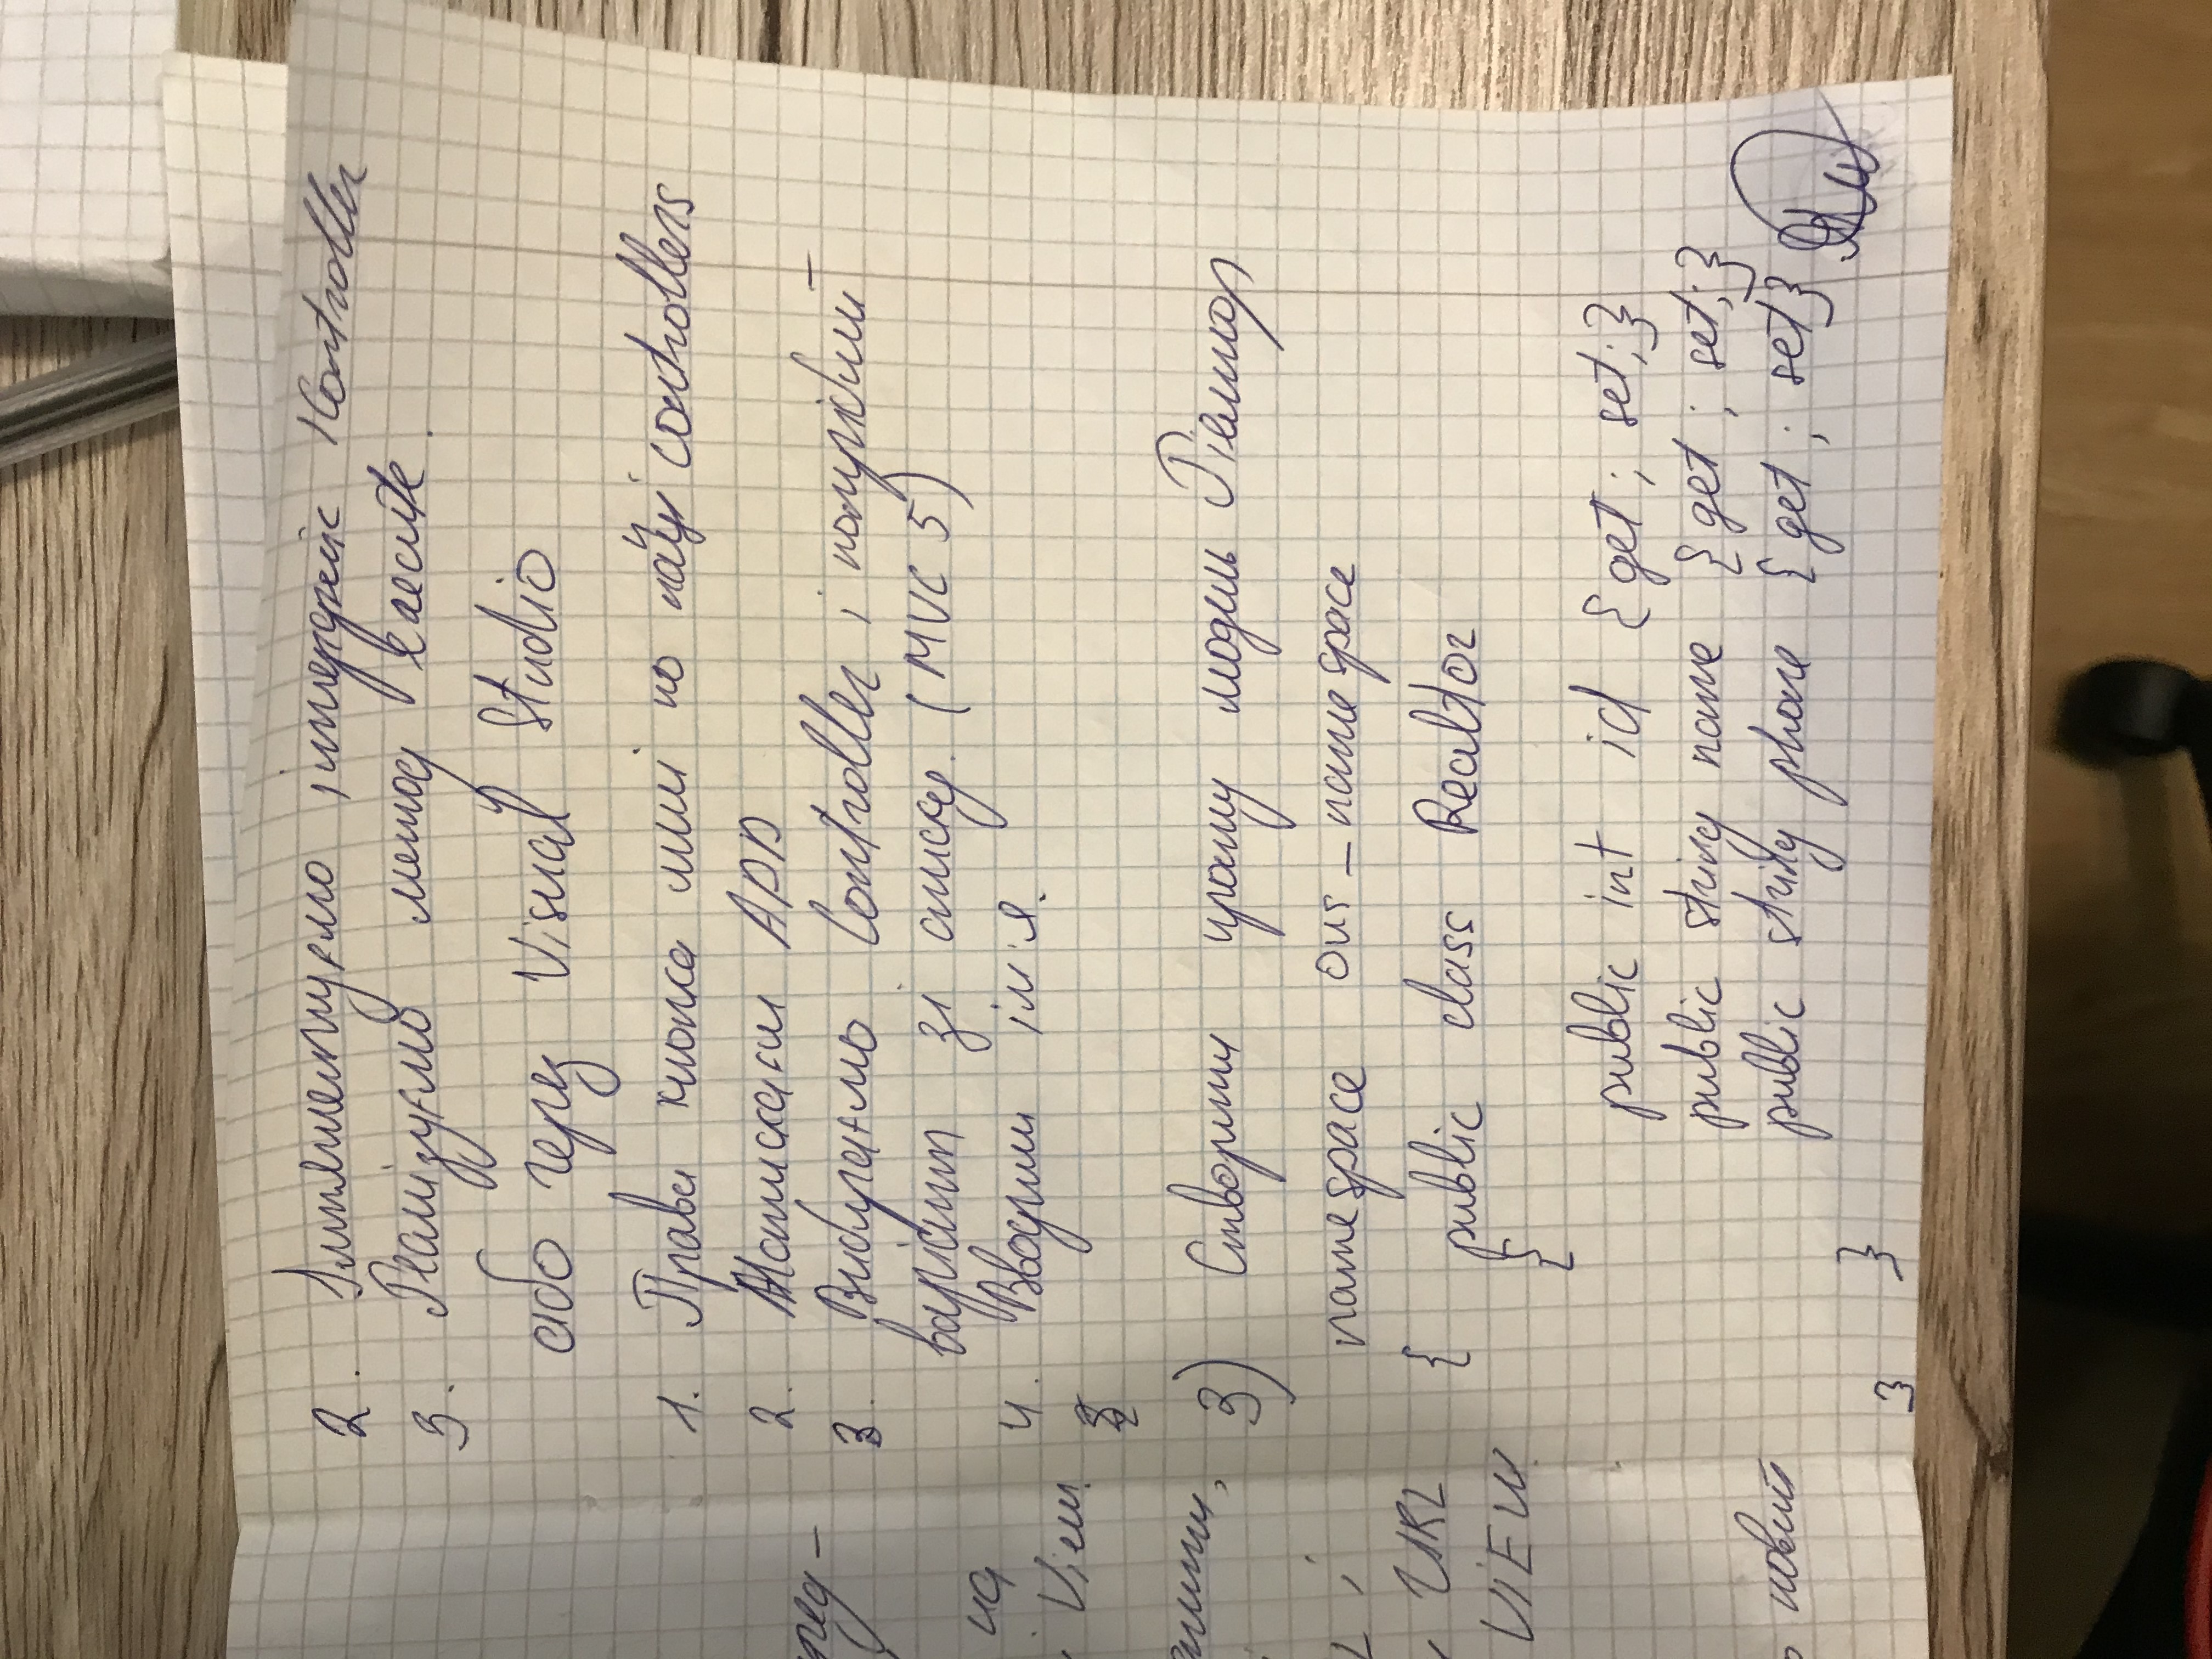 2. Імплементуємо інтерфейс IController
3. Реалізуємо метод execute.
або через Visual Studio
1. Права кнопка миші по папці controllers
2. Натискаєм ADD
3. Вибираємо Controller і потрібний
варіант зі списку. (MVC 5)
4. Вводим ім'я.
3) Створити просту модель Ріелтор
namespace our_namespace
{ public class Realtor
{
public int id {get; set;}
public string name {get; set;}
public string phone {get; set}
}
}
на
View.
і
URL
VIEW.
новий